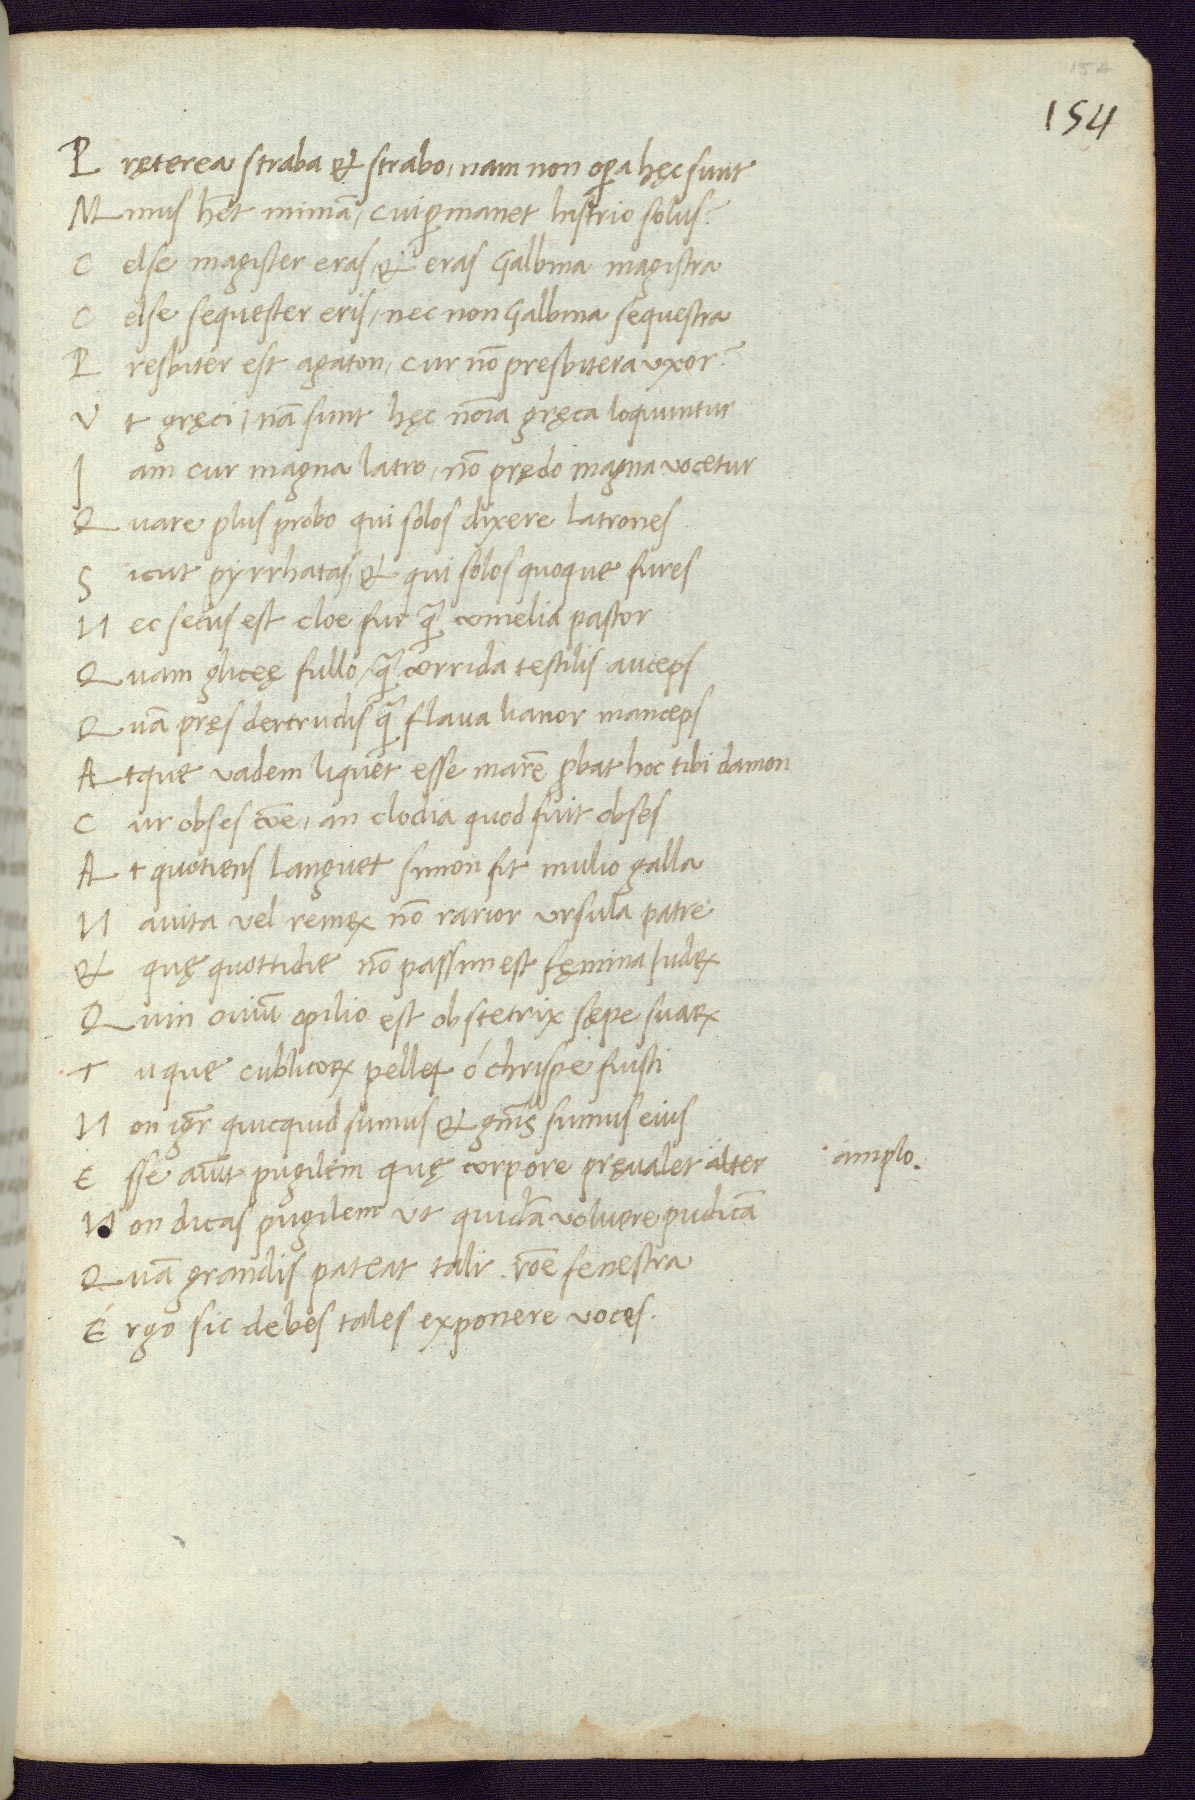 154
154
Pręterea straba & strabo, nam non opa hęc sunt
Mimus hēt mimā, cui pmanet histrio solus?
Celse magister eras, & eras Galbina magistra
Celse sequester eris, nec non Galbina sequestra
Presbiter est agaton, cur nō presbitera uxor?
Vt gręci, nā sunt hęc nōia gręca loquuntur
Iam cur magna latro, nō prędo magna vocetur
Quare plus probo qui solos dixere latrones
Sicut pyrrhatas, & qui solos quoque fures
Nec secus est cloe fur q̄ cornelia pastor
Quam gliceę fullo, q̄ corrida testilis auceps
Quā pręs dertrudis q̄ flava lianor manceps
Atque vadem liquet esse marē pbat hoc tibi damon
Cur obses cōe, an clodia quod fuit obses
At quotiens languet simon fit mulio galla
Navita vel remex nō rarior ursula patre
& quę quottidie nō passim est fęmina iudex
Quin oviū opilio est obstetrix sępe suaꝝ
Tuque cublicoꝝ pellex ó chrispe fuisti
Non igr quicquid sumus & gn̄is sumus eius
Esse aiūt pugilem quę corpore pręvalet alter
amplo.
Non dicas pugilem ut quidā voluere pudicā
Quā grandis pateat tali rōe fenestra
Ergo sic debes tales exponere voces.